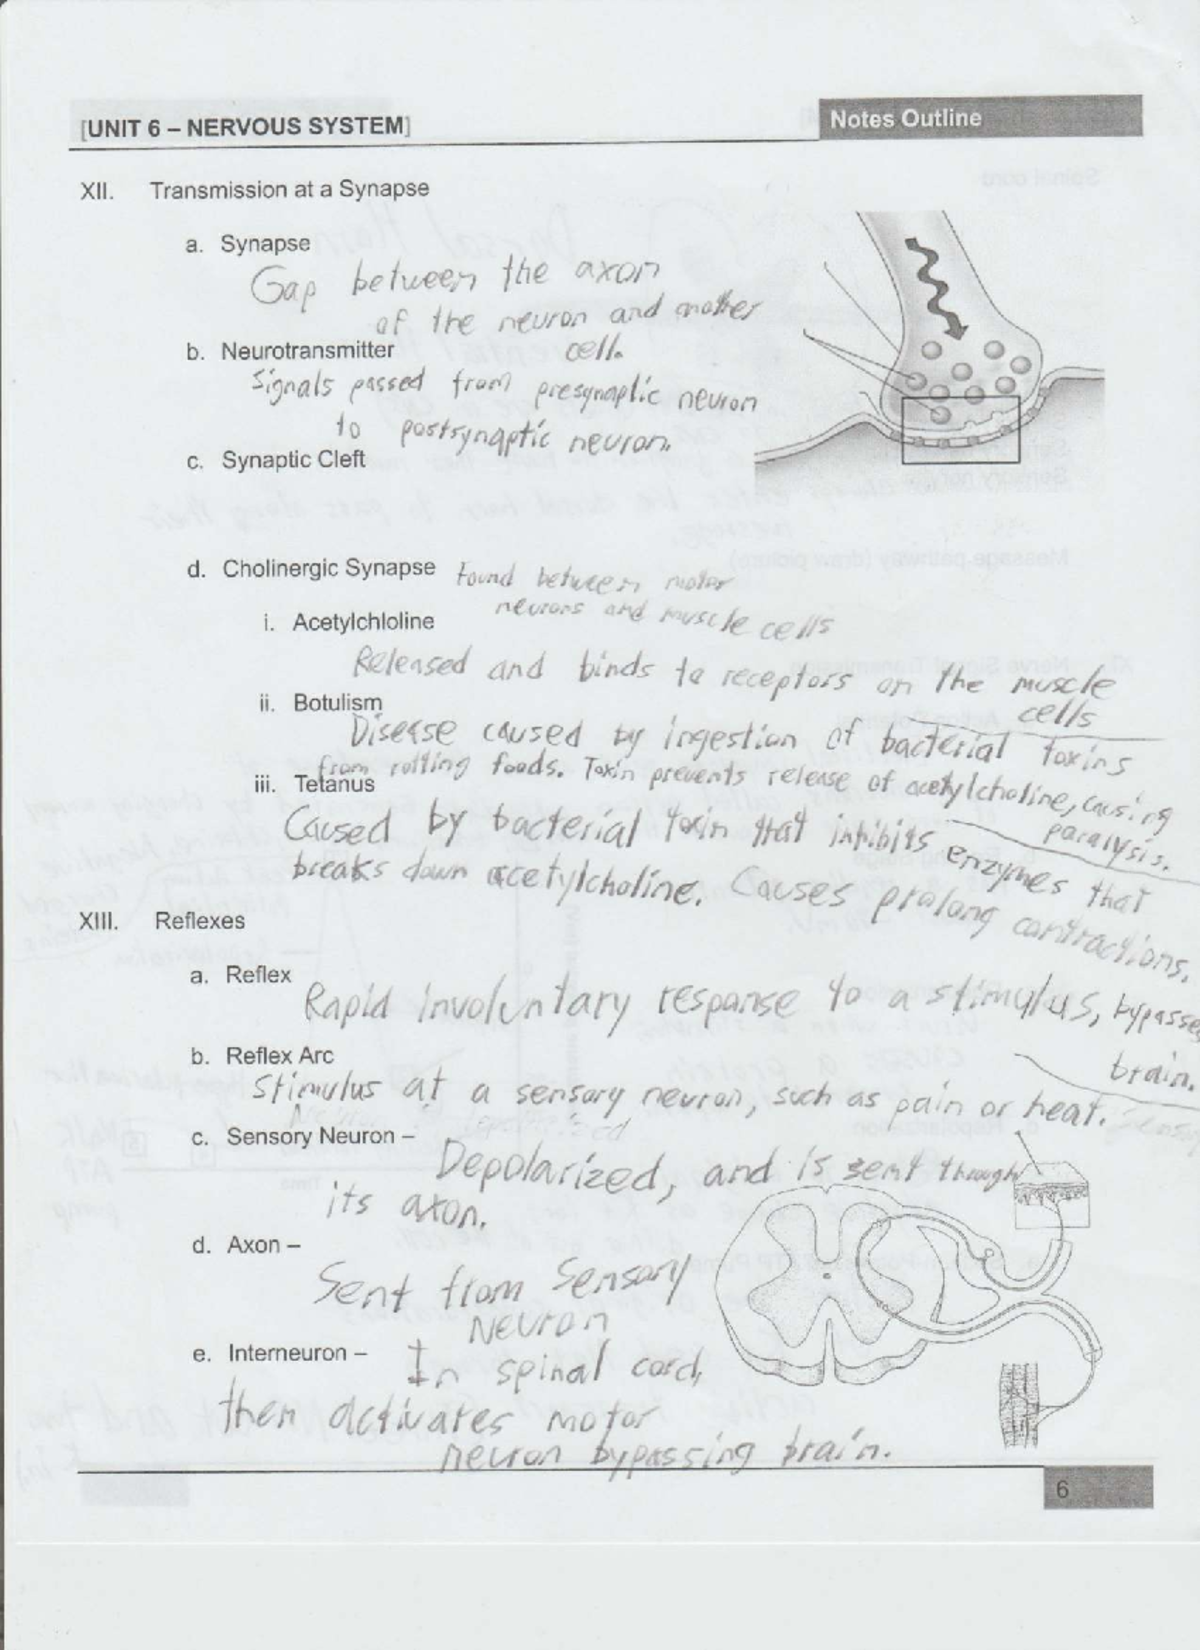 [UNIT 6 – NERVOUS SYSTEM]
Notes Outline
XII. Transmission at a Synapse
a. Synapse
Gap between the axon
of the neuron and another
cell.
b. Neurotransmitter
Signals passed from presynaptic neuron
to postsynaptic neuron.
c. Synaptic Cleft
d. Cholinergic Synapse found between motor
neurons and muscle cells
i. Acetylchloline
Released and binds to receptors on the muscle
cells
ii. Botulism
Disease caused by ingestion of bacterial toxins
from rotting foods. Toxin prevents release of acetylcholine, causing
paralysis.
iii. Tetanus
Caused by bacterial toxin that inhibits enzymes that
breaks down acetylcholine. Causes prolong contractions.
XIII. Reflexes
a. Reflex
Rapid involuntary response to a stimulus, bypasses
brain.
b. Reflex Arc
Stimulus at a sensory neuron, such as pain or heat.
c. Sensory Neuron –
Depolarized, and is sent through
its axon.
d. Axon –
Sent from Sensory
Neuron
e. Interneuron – In spinal cord,
then activates motor
neuron bypassing brain.
6